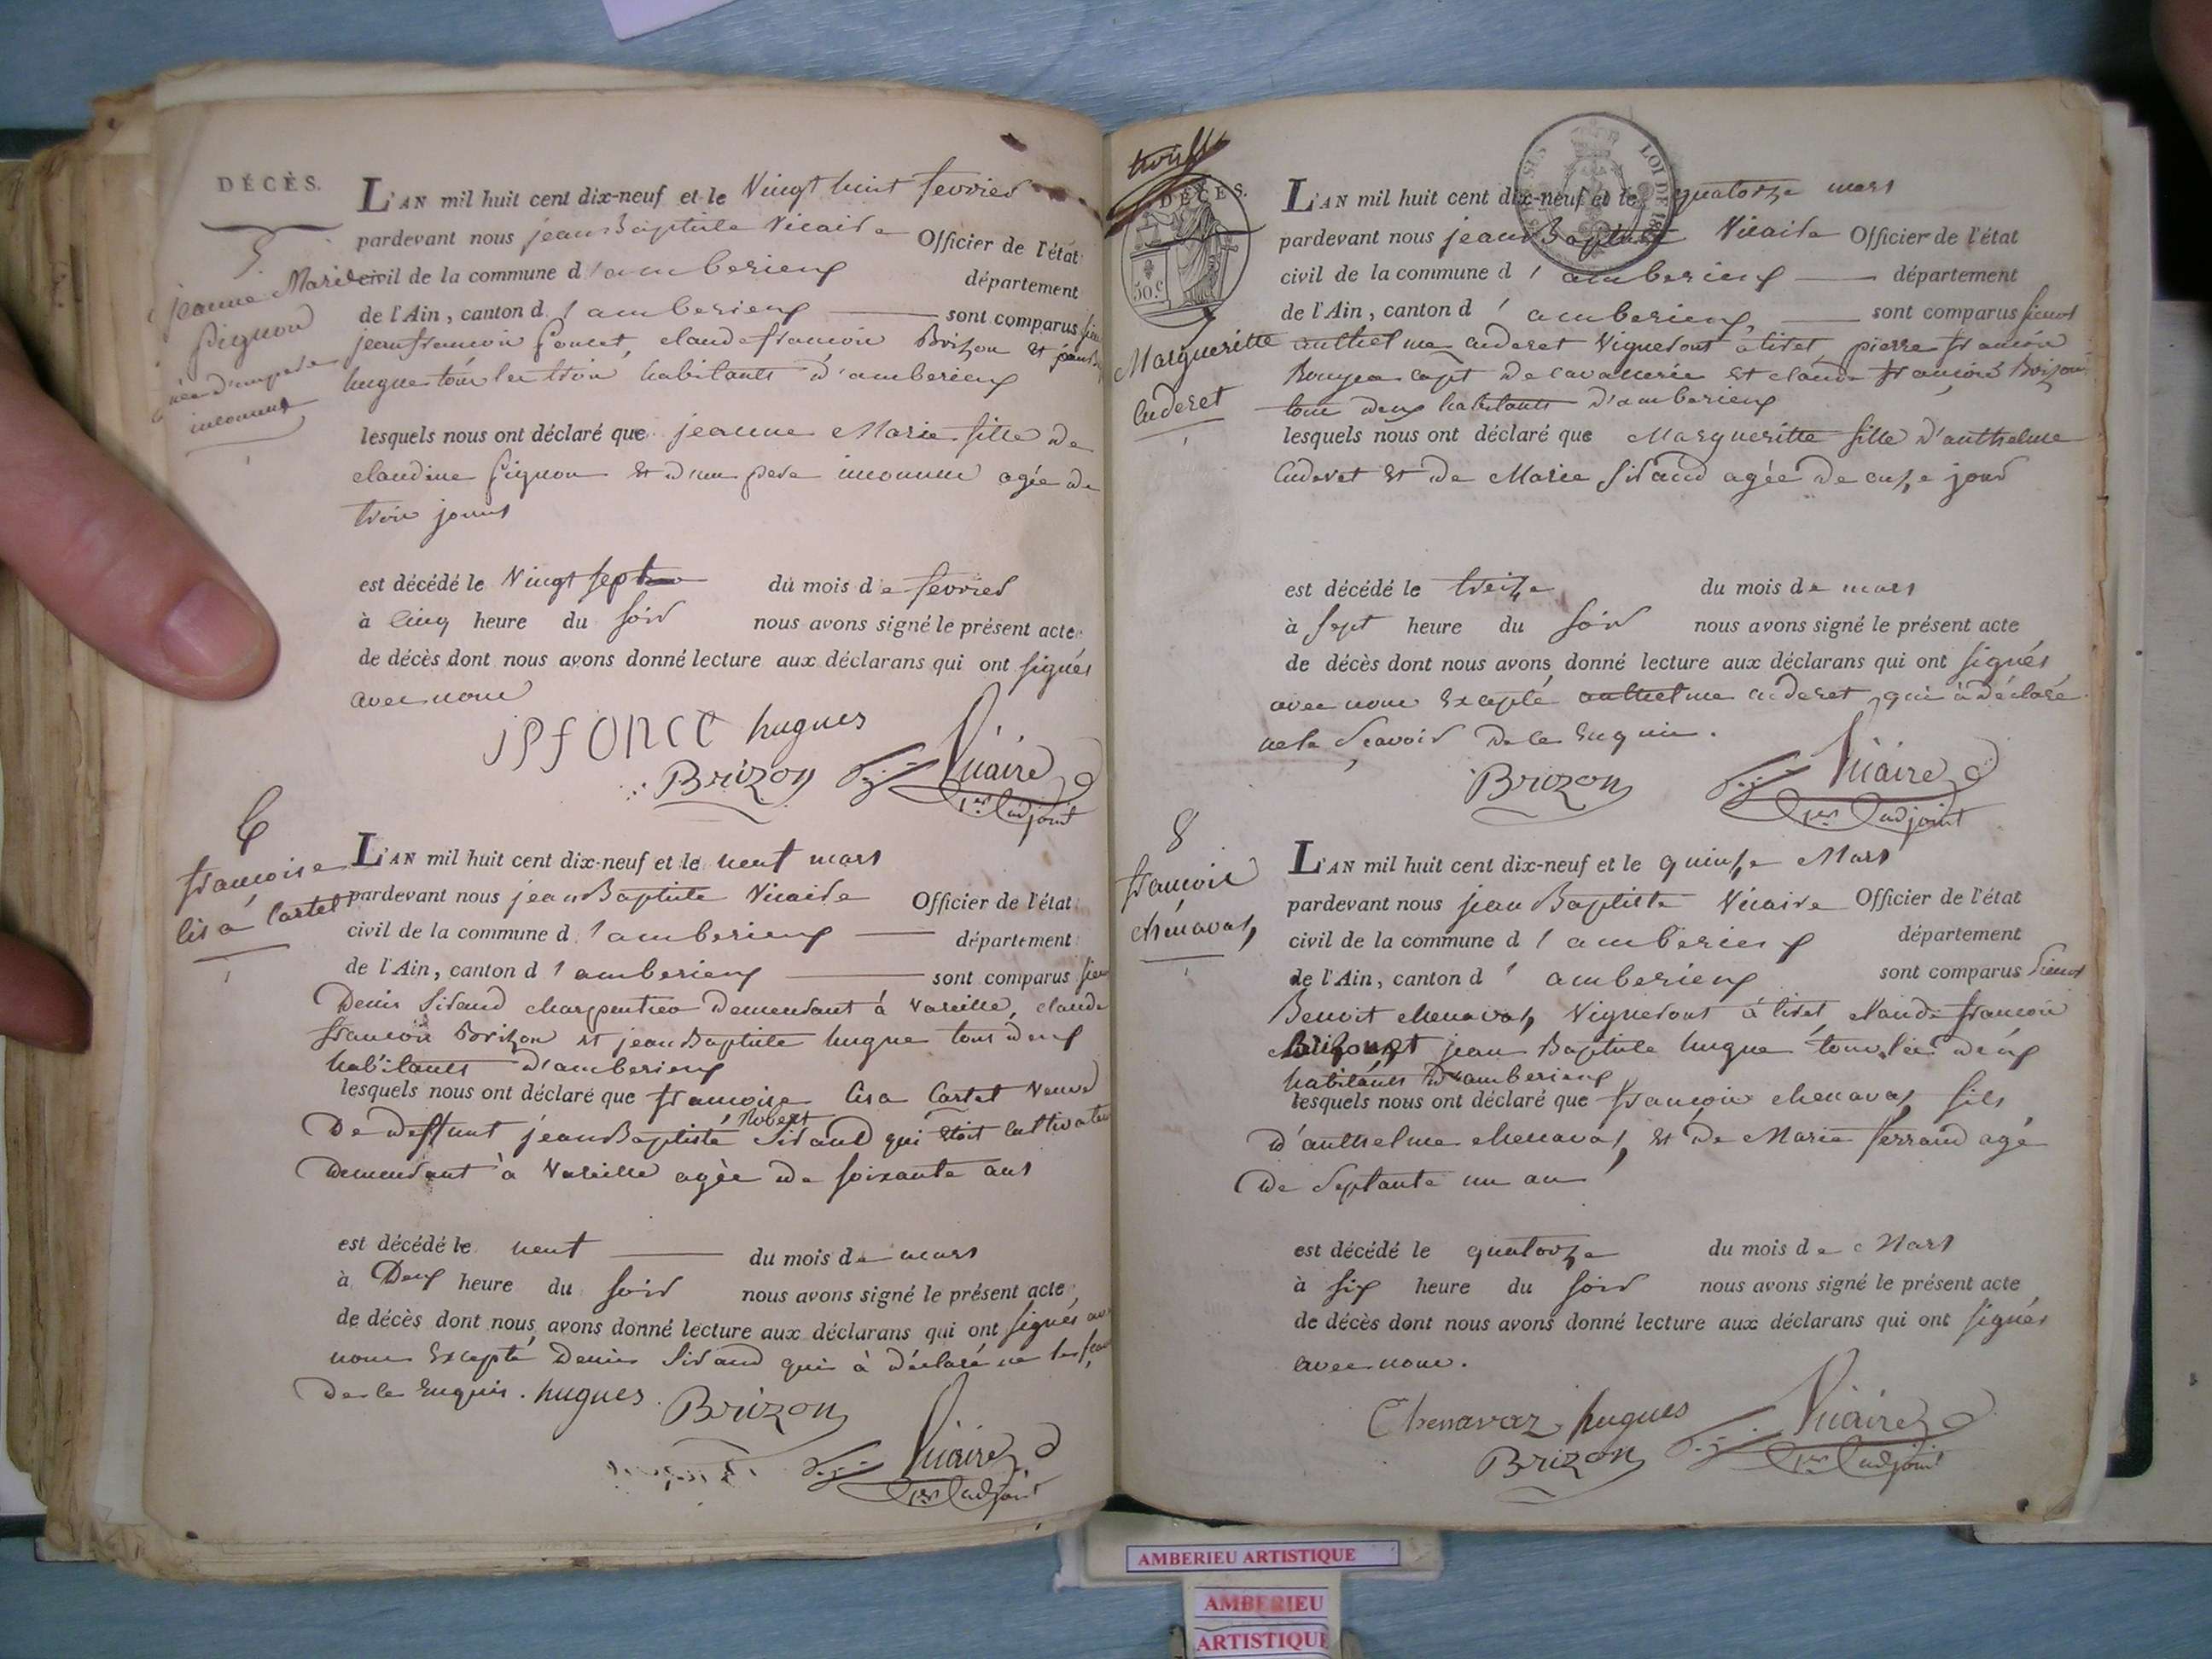 DÉCÈS.
5.
jeanne Marie
pignon
née d'un pere
inconnus
L'AN mil huit cent dix-neuf et le Vingt huit fevrier
pardevant nous jean Baptiste Vicaire Officier de l'état
civil de la commune d'amberieux département
de l'Ain, canton d'amberieux sont comparus
jean francois poncet, claude francois Brizon et jean
hugue tous les trois habitants d'amberieux
lesquels nous ont déclaré que jeanne Marie fille de
claudine pignon et d'un pere inconnu agée de
trois jours
est décédé le Vingt sept du mois de fevrier
à Cinq heure du soir nous avons signé le présent acte
de décès dont nous avons donné lecture aux déclarans qui ont signés
avec nous
jpf ONCE hugues
BRIZON Vicaire
1er adjoint
6
francoise
lisa Cartet
L'AN mil huit cent dix-neuf et le neuf mars
pardevant nous jean Baptiste Vicaire Officier de l'état
civil de la commune d'amberieux département
de l'Ain, canton d'amberieux sont comparus
Denis Siraud charpentier demeurant à Vareille, claude
francois Brizon et jean Baptiste hugue tous deux
habitants d'amberieux
lesquels nous ont déclaré que francoise lisa Cartet Veuve
De deffunt jean Baptiste Robert Siraud qui étoit Cultivateur
demeurant à Vareille agée de soixante ans
est décédé le neuf du mois de mars
à Deux heure du soir nous avons signé le présent acte
de décès dont nous avons donné lecture aux déclarans qui ont signés
nous Excepté Denis Siraud qui à déclaré ne le
De ce Enquis. hugues BRIZON
Vicaire
1er adjoint
DÉCÈS.
50.c
LOI DE 18
Margueritte
Cuderet
L'AN mil huit cent dix-neuf et le quatorze mars
pardevant nous jean Baptiste Vicaire Officier de l'état
civil de la commune d'amberieux département
de l'Ain, canton d'amberieux, sont comparus sieurs
anthelme Cuderet Vigneront à tiret, pierre francois
capt de cavallerie et claude francois Brizon
tous deux habitants d'amberieux
lesquels nous ont déclaré que Margueritte fille d'anthelme
Cuderet et de Marie Siraud agée de onze jour
est décédé le treize du mois de mars
à sept heure du soir nous avons signé le présent acte
de décès dont nous avons donné lecture aux déclarans qui ont signés
avec nous Excepté anthelme Cuderet, qui à déclaré
ne le scavoir De ce Enquis.
BRIZON Vicaire
1er adjoint
8
francois
chenavaz
L'AN mil huit cent dix-neuf et le quinze Mars
pardevant nous jean Baptiste Vicaire Officier de l'état
civil de la commune d'amberieux département
de l'Ain, canton d'amberieux sont comparus sieurs
Benoit chenavaz Vigneront à tiret, claude francois
Brizon et jean Baptiste hugue tous les deux
habitants d'amberieux
lesquels nous ont déclaré que francois chenavaz fils
d'anthelme chenavaz, et de Marie ferrand agé
de Septante un an
est décédé le quatorze du mois de Mars
à six heure du soir nous avons signé le présent acte
de décès dont nous avons donné lecture aux déclarans qui ont signés
avec nous.
Chenavaz hugues Vicaire
BRIZON 1er adjoint
AMBERIEU ARTISTIQUE
AMBERIEU
ARTISTIQUE